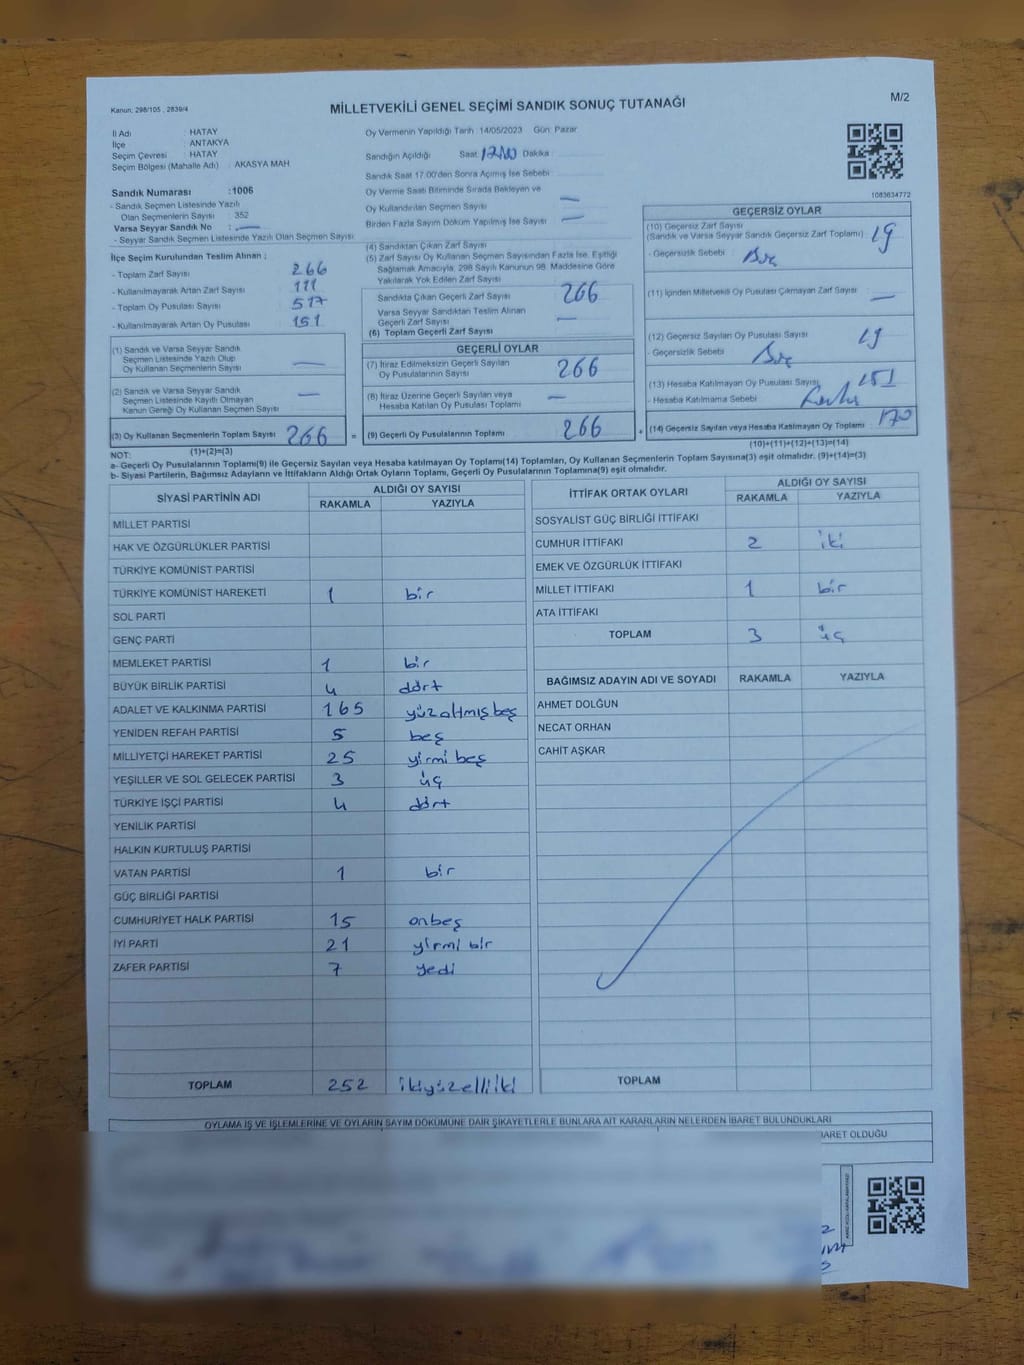 Kanun: 298/105 , 2839/4
MİLLETVEKİLİ GENEL SEÇİMİ SANDIK SONUÇ TUTANAĞI
M/2
İl Adı : HATAY
İlçe : ANTAKYA
Seçim Çevresi : HATAY
Seçim Bölgesi (Mahalle Adı) : AKASYA MAH.
Sandık Numarası : 1006
- Sandık Seçmen Listesinde Yazılı
Olan Seçmenlerin Sayısı : 352
Varsa Seyyar Sandık No : —
- Seyyar Sandık Seçmen Listesinde Yazılı Olan Seçmen Sayısı
Oy Vermenin Yapıldığı Tarih : 14/05/2023 Gün: Pazar
Sandığın Açıldığı Saat: Dakika :
Sandık Saat 17.00'den Sonra Açılmış İse Sebebi :
Oy Verme Saati Bitiminde Sırada Bekleyen ve
Oy Kullandırılan Seçmen Sayısı —
Birden Fazla Sayım Döküm Yapılmış İse Sayısı —
1083634772
İlçe Seçim Kurulundan Teslim Alınan ;
- Toplam Zarf Sayısı 266
- Kullanılmayarak Artan Zarf Sayısı 111
- Toplam Oy Pusulası Sayısı 517
- Kullanılmayarak Artan Oy Pusulası 151
(1) Sandık ve Varsa Seyyar Sandık
Seçmen Listesinde Yazılı Olup
Oy Kullanan Seçmenlerin Sayısı —
(2) Sandık ve Varsa Seyyar Sandık
Seçmen Listesinde Kayıtlı Olmayan
Kanun Gereği Oy Kullanan Seçmen Sayısı —
(3) Oy Kullanan Seçmenlerin Toplam Sayısı 266
(1)+(2)=(3)
(4) Sandıktan Çıkan Zarf Sayısı
(5) Zarf Sayısı Oy Kullanan Seçmen Sayısından Fazla İse, Eşitliği
Sağlamak Amacıyla, 298 Sayılı Kanunun 98. Maddesine Göre
Yakılarak Yok Edilen Zarf Sayısı
Sandıkta Çıkan Geçerli Zarf Sayısı 266
Varsa Seyyar Sandıktan Teslim Alınan
Geçerli Zarf Sayısı —
(6) Toplam Geçerli Zarf Sayısı
GEÇERLİ OYLAR
(7) İtiraz Edilmeksizin Geçerli Sayılan
Oy Pusulalarının Sayısı 266
(8) İtiraz Üzerine Geçerli Sayılan veya
Hesaba Katılan Oy Pusulası Toplamı —
= (9) Geçerli Oy Pusulalarının Toplamı 266 +
GEÇERSİZ OYLAR
(10) Geçersiz Zarf Sayısı
(Sandık ve Varsa Seyyar Sandık Geçersiz Zarf Toplamı) 19
- Geçersizlik Sebebi :
(11) İçinden Milletvekili Oy Pusulası Çıkmayan Zarf Sayısı : —
(12) Geçersiz Sayılan Oy Pusulası Sayısı : 19
- Geçersizlik Sebebi :
(13) Hesaba Katılmayan Oy Pusulası Sayısı : 151
- Hesaba Katılmama Sebebi :
(14) Geçersiz Sayılan veya Hesaba Katılmayan Oy Toplamı : 170
(10)+(11)+(12)+(13)=(14)
NOT:
a- Geçerli Oy Pusulalarının Toplamı(9) ile Geçersiz Sayılan veya Hesaba katılmayan Oy Toplamı(14) Toplamları, Oy Kullanan Seçmenlerin Toplam Sayısına(3) eşit olmalıdır. (9)+(14)=(3)
b- Siyasi Partilerin, Bağımsız Adayların ve İttifakların Aldığı Ortak Oyların Toplamı, Geçerli Oy Pusulalarının Toplamına(9) eşit olmalıdır.
SİYASİ PARTİNİN ADI ALDIĞI OY SAYISI
RAKAMLA YAZIYLA
MİLLET PARTİSİ
HAK VE ÖZGÜRLÜKLER PARTİSİ
TÜRKİYE KOMÜNİST PARTİSİ
TÜRKİYE KOMÜNİST HAREKETİ 1 bir
SOL PARTİ
GENÇ PARTİ
MEMLEKET PARTİSİ 1 bir
BÜYÜK BİRLİK PARTİSİ 4 dört
ADALET VE KALKINMA PARTİSİ 165 yüzaltmışbeş
YENİDEN REFAH PARTİSİ 5 beş
MİLLİYETÇİ HAREKET PARTİSİ 25 yirmi beş
YEŞİLLER VE SOL GELECEK PARTİSİ 3 üç
TÜRKİYE İŞÇİ PARTİSİ 4 dört
YENİLİK PARTİSİ
HALKIN KURTULUŞ PARTİSİ
VATAN PARTİSİ 1 bir
GÜÇ BİRLİĞİ PARTİSİ
CUMHURİYET HALK PARTİSİ 15 onbeş
İYİ PARTİ 21 yirmi bir
ZAFER PARTİSİ 7 yedi
TOPLAM 252 ikiyüzelliiki
İTTİFAK ORTAK OYLARI ALDIĞI OY SAYISI
RAKAMLA YAZIYLA
SOSYALİST GÜÇ BİRLİĞİ İTTİFAKI
CUMHUR İTTİFAKI 2 iki
EMEK VE ÖZGÜRLÜK İTTİFAKI
MİLLET İTTİFAKI 1 bir
ATA İTTİFAKI
TOPLAM 3 üç
BAĞIMSIZ ADAYIN ADI VE SOYADI RAKAMLA YAZIYLA
AHMET DOLĞUN
NECAT ORHAN
CAHİT AŞKAR
TOPLAM
OYLAMA İŞ VE İŞLEMLERİNE VE OYLARIN SAYIM DÖKÜMÜNE DAİR ŞİKAYETLERLE BUNLARA AİT KARARLARIN NELERDEN İBARET BULUNDUKLARI
BARET OLDUĞU